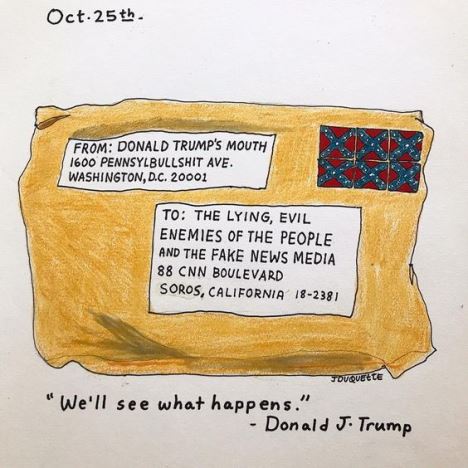 Oct. 25th.
FROM: DONALD TRUMP'S MOUTH
1600 PENNSYLBULLSHIT AVE.
WASHINGTON, D.C. 20001
TO: THE LYING, EVIL
ENEMIES OF THE PEOPLE
AND THE FAKE NEWS MEDIA
88 CNN BOULEVARD
SOROS, CALIFORNIA 18-2381
JDUQUETTE
"We'll see what happens."
- Donald J. Trump